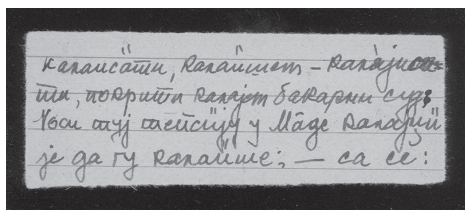 каланса̏ти, кала̏ишем – кала̀јиса-
ти, покрити кала̀јем бакарни суд;
Носи туј тепсију у Ма̏де калајџи̏
је да гу кала̏ише; — са се: